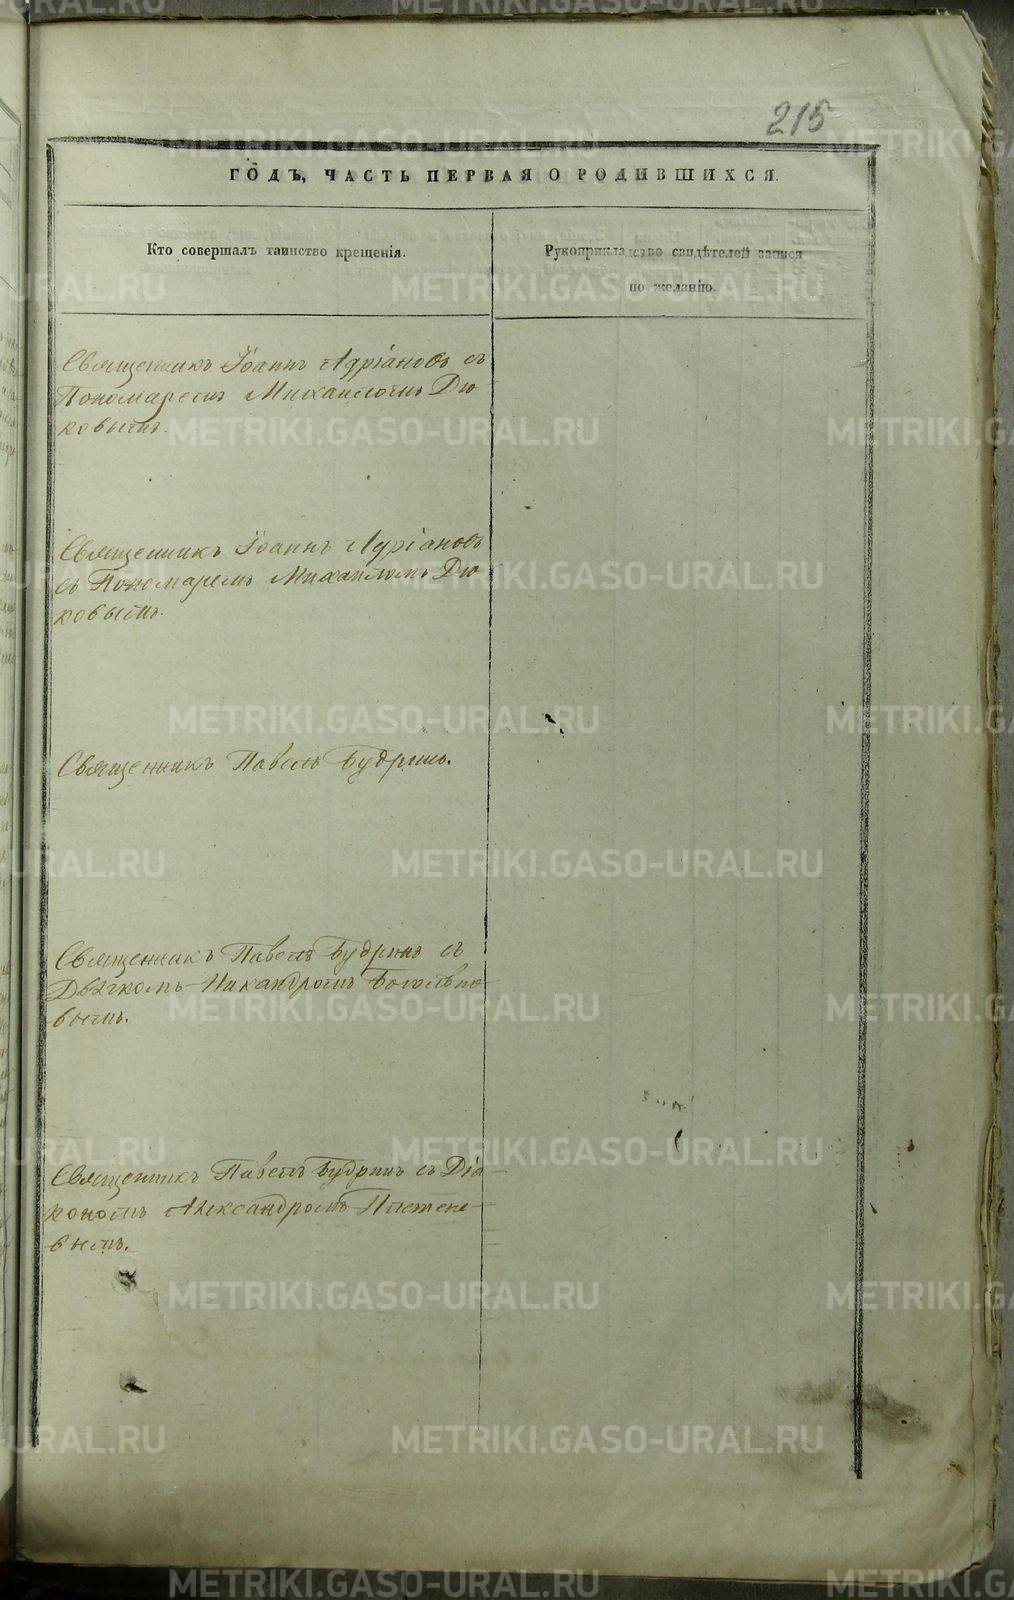 215
ГОДЪ, ЧАСТЬ ПЕРВАЯ О РОДИВШИХСЯ.
Кто совершалъ таинство крещенія.
Рукоприкладство свидѣтелей записи
по желанію.
Священникъ Іоаннъ Адріановъ съ
Пономаремъ Михаиломъ Дю
ковымъ.
Священникъ Іоаннъ Адріановъ
съ Пономаремъ Михаиломъ Дю
ковымъ.
Священникъ Павелъ Будринъ.
Священникъ Павелъ Будринъ съ
Дьячкомъ Никандромъ Боголѣпо-
вымъ.
Священникъ Павелъ Будринъ съ Діа-
кономъ Александромъ Плетене-
вымъ.
METRIKI.GASO-URAL.RU